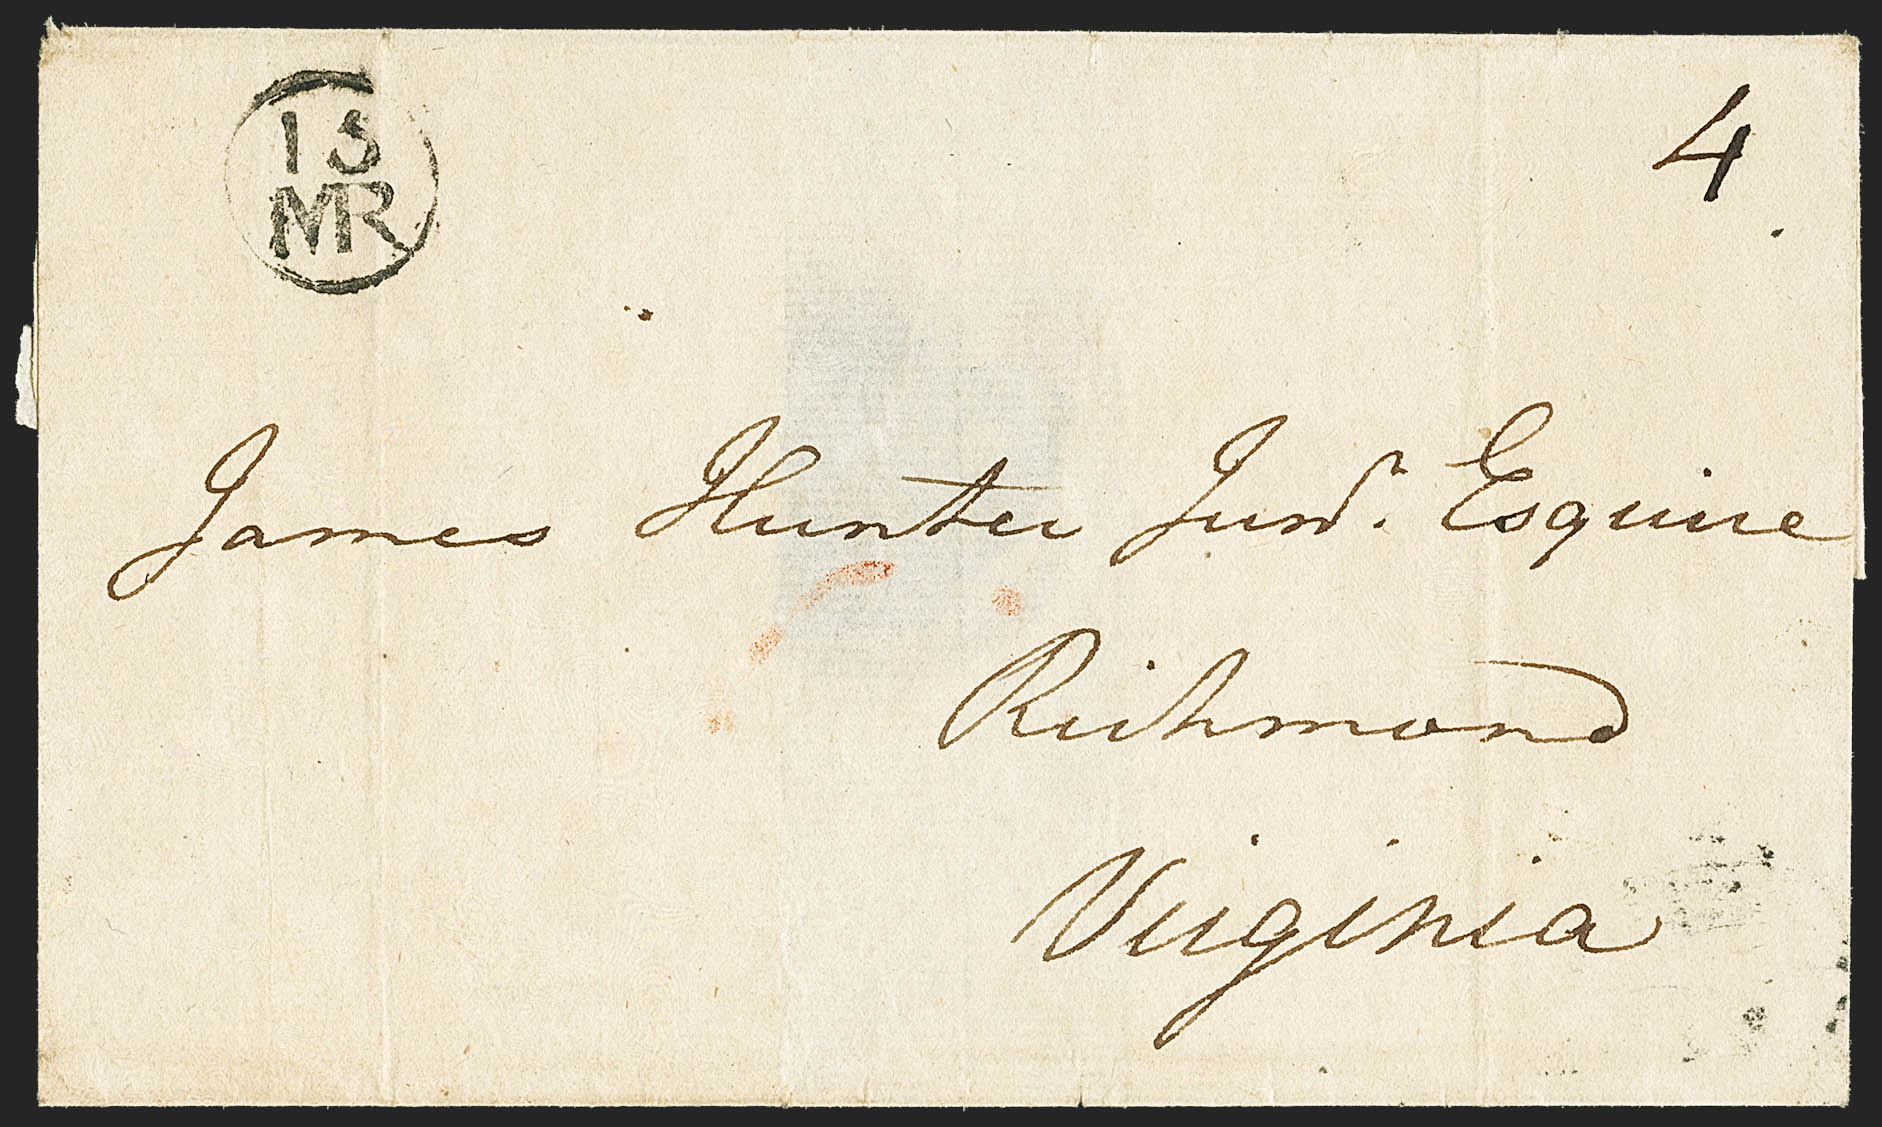 15
MR
4
James Hunter Junr. Esquire
Richmond
Virginia